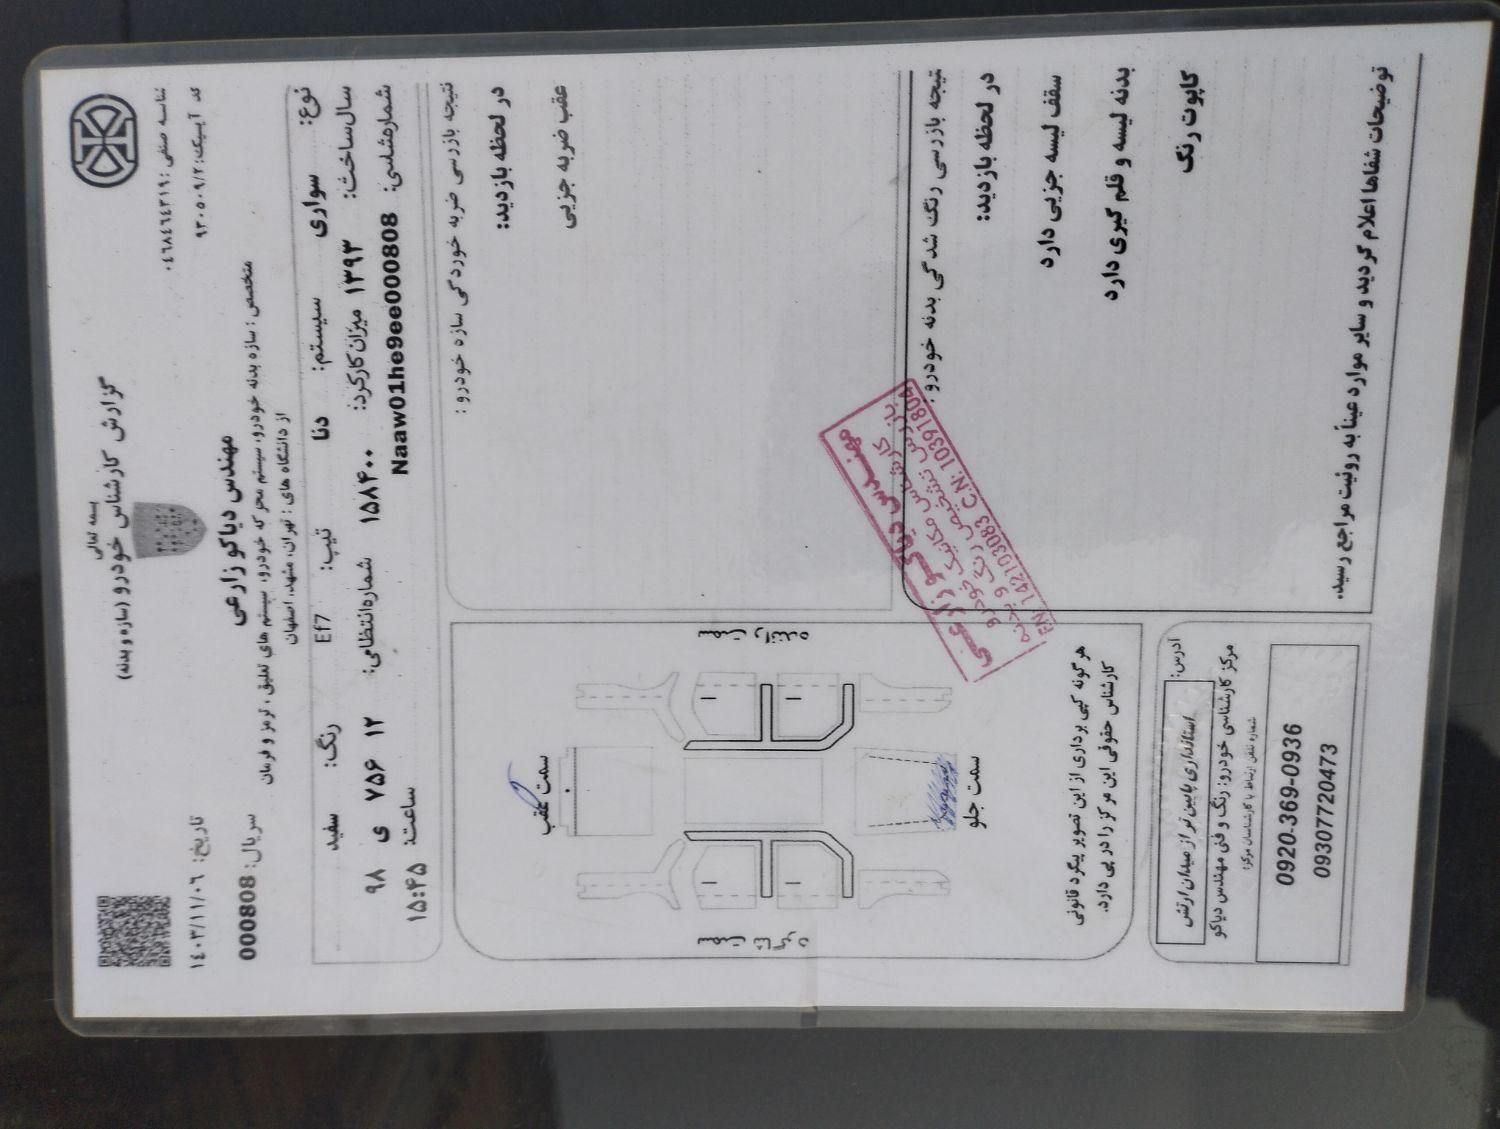 بسمه تعالی
گزارش کارشناس خودرو (سازه و بدنه)
شناسه صنفی: ۰٤٦٨٤٦٤٣١٩
کد آیسیک: ۹۳۰۵۰۹/۲
تاریخ: ١٤٠٣/١١/٠٦
مهندس دیاکو زارعی
سریال: 000808
متخصص: سازه بدنه خودرو، سیستم محرکه خودرو، سیستم های تعلیق، ترمز و فرمان
از دانشگاه های: تهران، مشهد، اصفهان
نوع: سواری سیستم: دنا تیپ: Ef7 رنگ: سفید
سال ساخت: ۱۳۹۳ میزان کارکرد: ۱۵۸۴۰۰ شماره انتظامی: ۱۲ ۷۵۶ ی ۹۸
شماره شاسی: Naaw01he9ee000808 ساعت: ۱۵:۴۵
نتیجه بازرسی ضربه خوردگی سازه خودرو:
در لحظه بازدید:
عقب ضربه جزیی
نتیجه بازرسی رنگ شدگی بدنه خودرو:
در لحظه بازدید:
سقف لیسه جزیی دارد
بدنه لیسه و قلم گیری دارد
کاپوت رنگ
توضیحات شفاها اعلام گردید و سایر موارد عیناً به رؤیت مراجع رسید.
سمت عقب
سمت جلو
مهندس دیاکو زارعی
کارشناس مکانیک خودرو
بازرس تشخیص رنگ و بدنه
EN: 142103083 C.N: 103918804
هرگونه کپی برداری از این تصویر پیگرد قانونی
کارشناس حقوقی این مرکز را در پی دارد.
آدرس:
استانداری پایین تر از میدان ارتش
مرکز کارشناسی خودرو: رنگ و فنی مهندس دیاکو
شماره تلفن ارتباط با کارشناسان مرکز:
0920-369-0936
09307720473